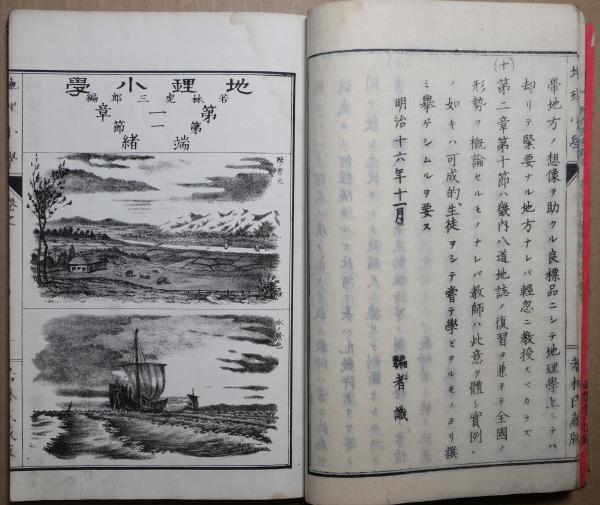 帶地方ノ想像ヲ助クル良標品ニシテ地理學上ニテハ
却リテ緊要ナル地方ナレバ輕忽ニ教授スベカラズ
(十)
第二章第十節ハ畿内八道地誌ノ復習ヲ兼子テ全國ノ
形勢ヲ概論セルモノナレバ教師ハ此意ヲ體シ實例
ノ如キハ可成的生徒ヲシテ嘗テ學ビタルモノヨリ撰
ミ擧ゲシムルヲ要ス
明治十六年十一月
編者識
地理小學
地理小學
若林虎三郎編
第一章
第一節
端緒
陸景色
水景色
地理小學